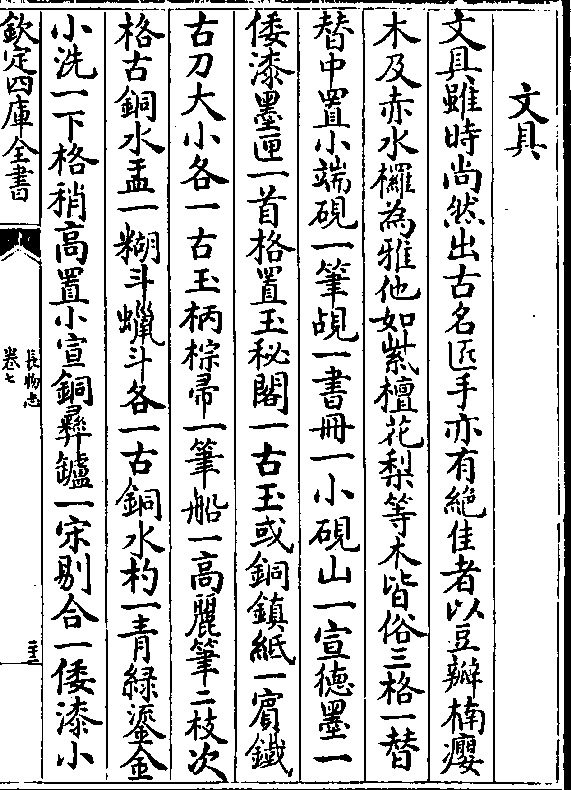 文具
文具雖時尚然出古名匠手亦有絶佳者以豆瓣楠癭
木及赤水欏為雅他如紫檀花梨等木皆俗三格一替
替中置小端硯一筆覘一書冊一小硯山一宣德墨一
倭漆墨匣一首格置玉秘閣一古玉或銅鎮紙一賔鐵
古刀大小各一古玉柄棕帚一筆船一高麗筆二枝次
格古銅水盂一糊斗蠟斗各一古銅水杓一青緑鎏金
小洗一下格稍高置小宣銅彞鑪一宋剔合一倭漆小
欽定四庫全書
長物志
卷七